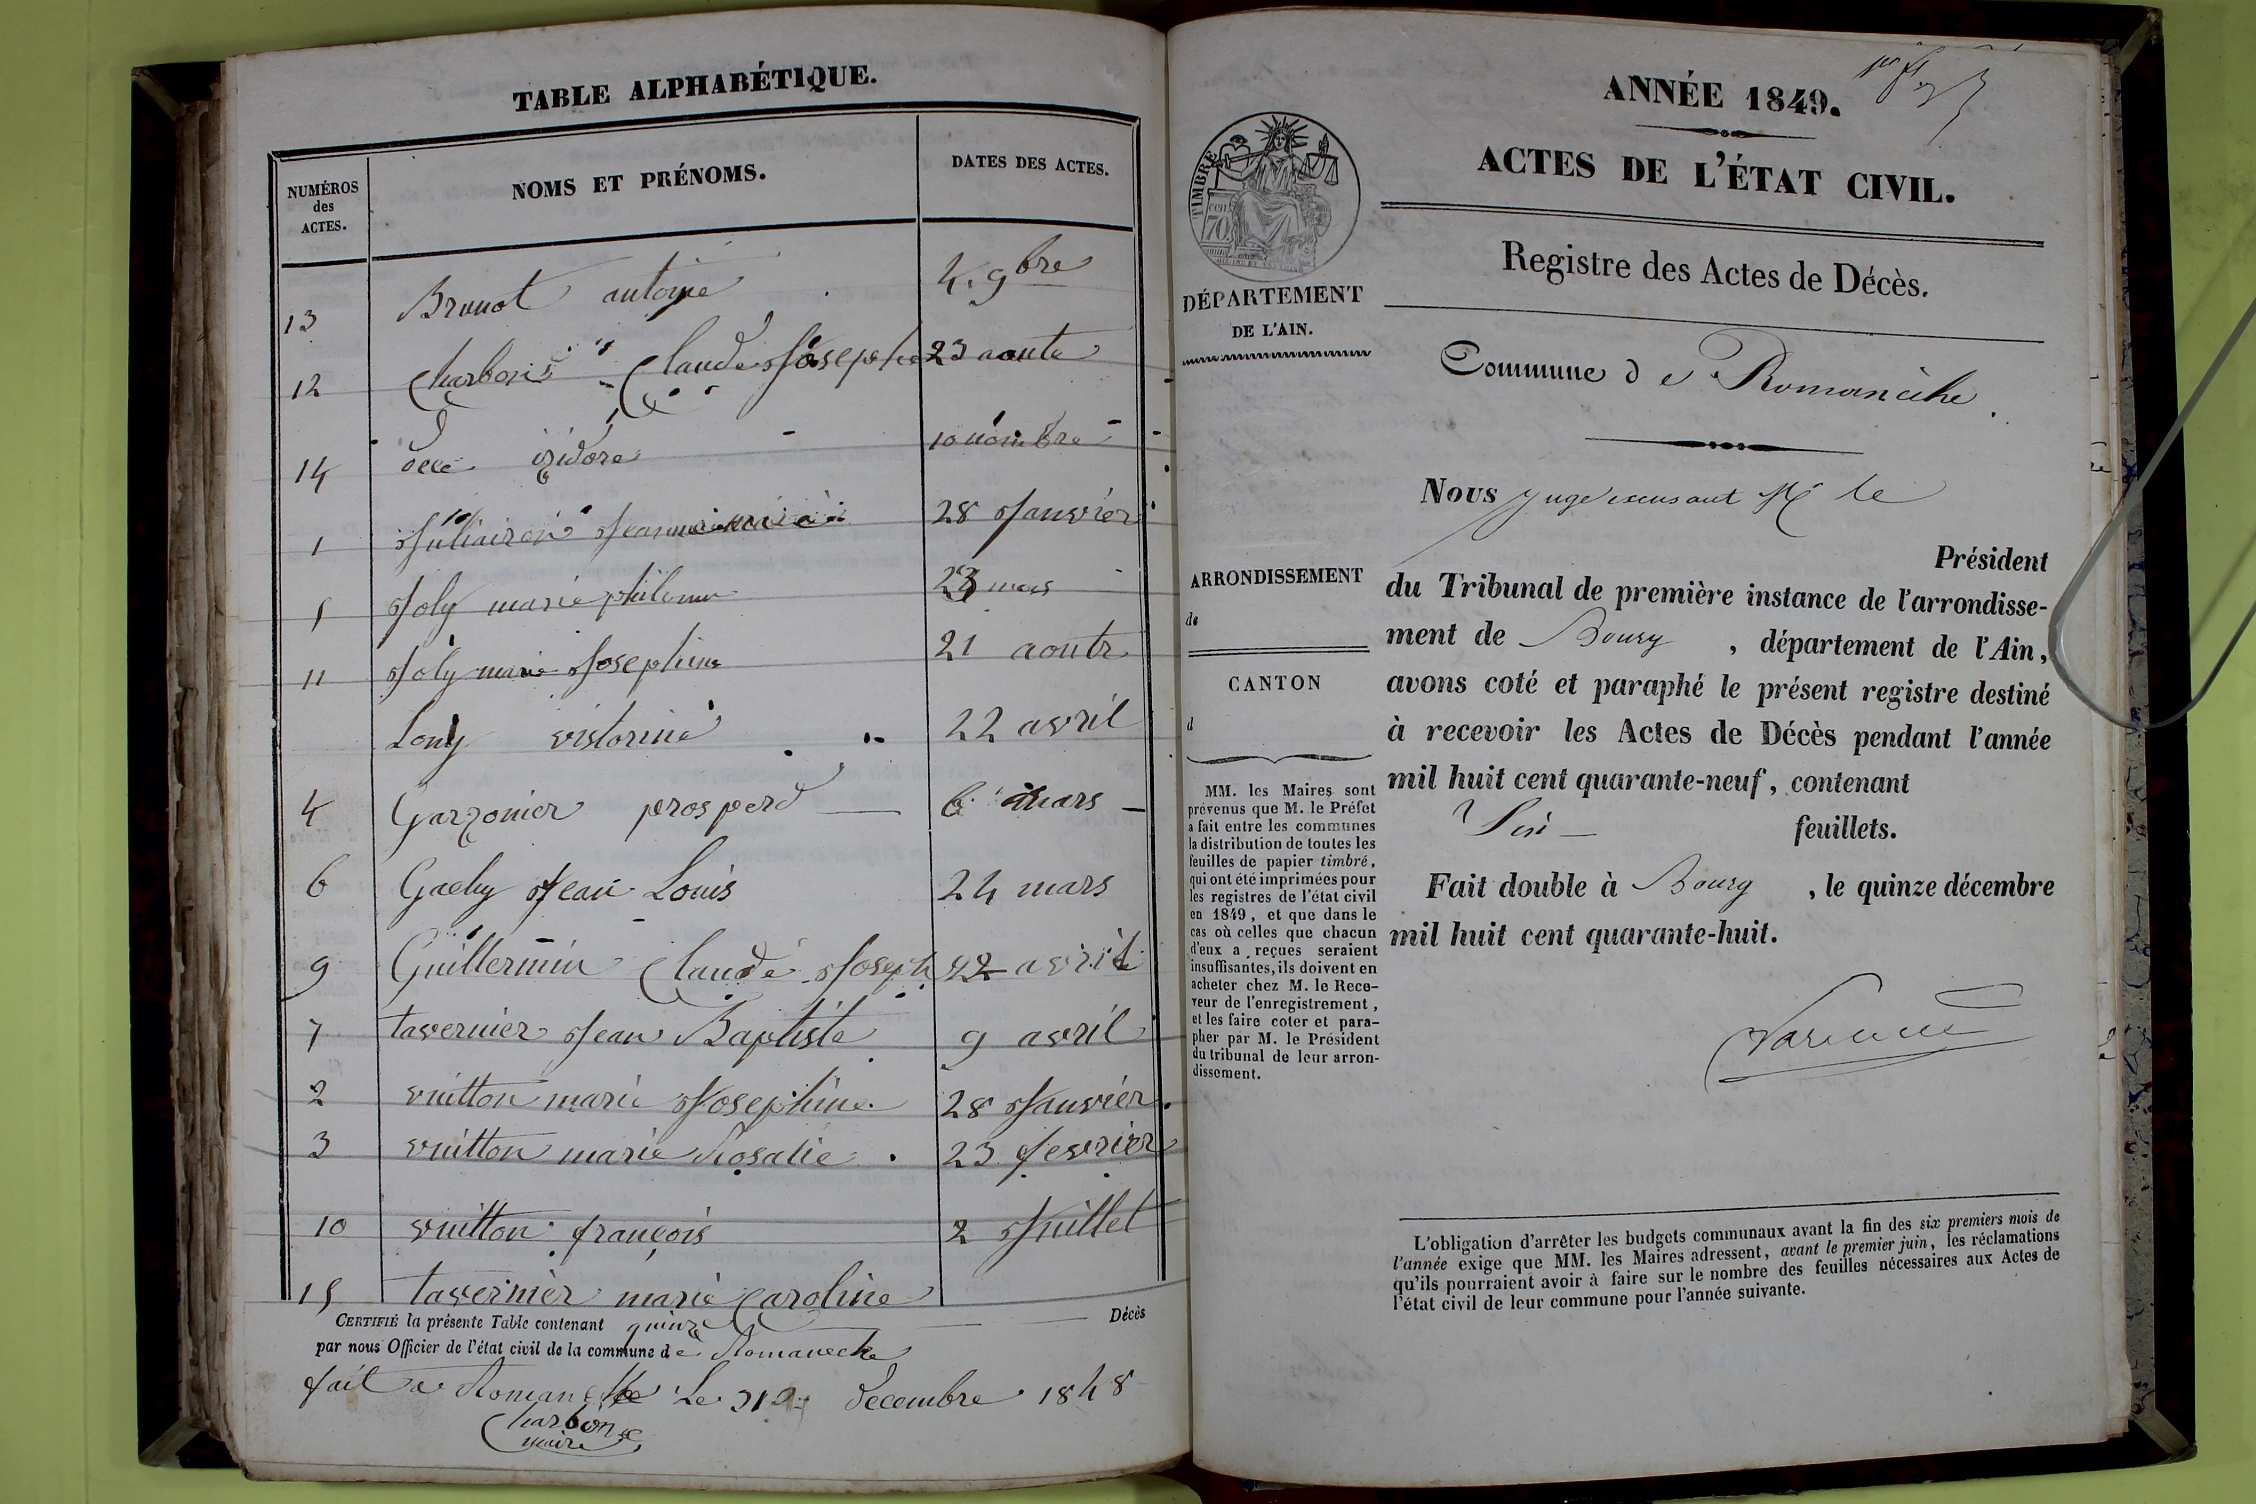 TABLE ALPHABÉTIQUE.
NUMÉROS des ACTES. NOMS ET PRÉNOMS. DATES DES ACTES.
13 Brunot antoine 4. 9bre
12 Charbon Claude Joseph 23 aoute
14 izidore 10
1 28 Janvier
5 Joly marie 23 mars
11 Joly marie Josephine 21 aoute
Lony vistorine 22 avril
4 Garzonier prosperd 6 mars
6 Jean Louis 24 mars
9 Guillermin Claude Joseph 22 avril
7 tavernier Jean Baptiste 9 avril
2 vuitton marie Josephine 28 Janvier
3 vuitton marie Rosalie 23 fevrier
10 vuitton françois 2 Juillet
15 tavernier marie Caroline
CERTIFIÉ la présente Table contenant quinze Décès
par nous Officier de l'état civil de la commune de Romaneche
fait a Romaneche Le 31 decembre 1848
Charbon
maire
ANNÉE 1849.
ACTES DE L'ÉTAT CIVIL.
TIMBRE
70
Registre des Actes de Décès.
DÉPARTEMENT
DE L'AIN.
Commune de Romanèche.
Nous Juge excusant Mr le
Président
du Tribunal de première instance de l'arrondisse-
ment de Bourg, département de l'Ain,
avons coté et paraphé le présent registre destiné
à recevoir les Actes de Décès pendant l'année
mil huit cent quarante-neuf, contenant
Six feuillets.
Fait double à Bourg, le quinze décembre
mil huit cent quarante-huit.
ARRONDISSEMENT
de
CANTON
d
MM. les Maires sont
prévenus que M. le Préfet
a fait entre les communes
la distribution de toutes les
feuilles de papier timbré,
qui ont été imprimées pour
les registres de l'état civil
en 1849, et que dans le
cas où celles que chacun
d'eux a reçues seraient
insuffisantes, ils doivent en
acheter chez M. le Rece-
veur de l'enregistrement,
et les faire coter et para-
pher par M. le Président
du tribunal de leur arron-
dissement.
L'obligation d'arrêter les budgets communaux avant la fin des six premiers mois de
l'année exige que MM. les Maires adressent, avant le premier juin, les réclamations
qu'ils pourraient avoir à faire sur le nombre des feuilles nécessaires aux Actes de
l'état civil de leur commune pour l'année suivante.